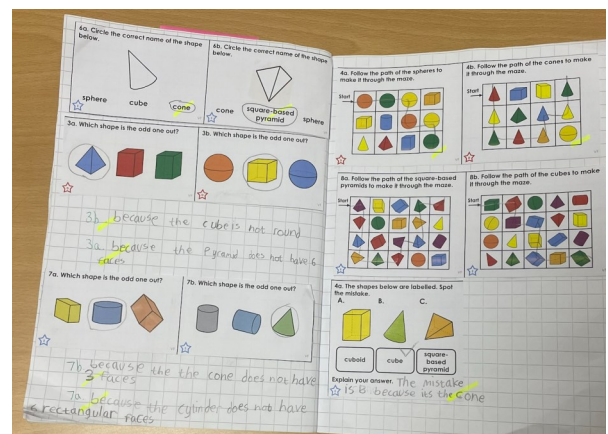 6a. Circle the correct name of the shape
below.
sphere
cube
cone
6b. Circle the correct name of the shape
below.
cone
square-based
pyramid
sphere
3a. Which shape is the odd one out?
3b. Which shape is the odd one out?
3b because the cube is not round
3a because the Pyramid does not have 6
faces
7a. Which shape is the odd one out?
7b. Which shape is the odd one out?
7b because the the cone does not have
3 faces
7a because the cylinder does not have
6 rectangular faces
4a. Follow the path of the spheres to
make it through the maze.
Start
4b. Follow the path of the cones to make
it through the maze.
Start
8a. Follow the path of the square-based
pyramids to make it through the maze.
Start
8b. Follow the path of the cubes to make
it through the maze.
Start
4a. The shapes below are labelled. Spot
the mistake.
A.
B.
C.
cuboid
cube
square-
based
pyramid
Explain your answer. The mistake
is B because its the cone